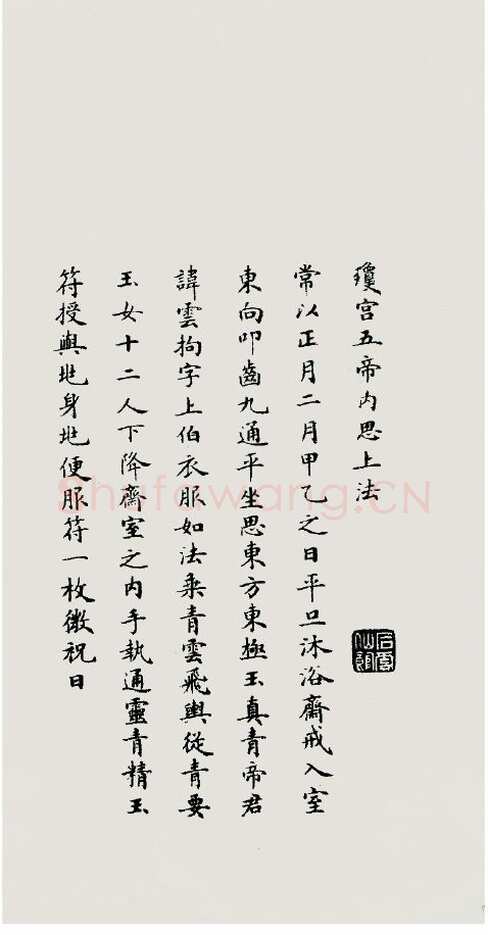 瓊宫五帝内思上法
常以正月二月甲乙之日平旦沐浴齋戒入室
東向叩齒九通平坐思東方東極玉真青帝君
諱雲拘字上伯衣服如法乘青雲飛輿從青要
玉女十二人下降齋室之内手執通靈青精玉
符授與兆身兆便服符一枚微祝曰
Shufawang.CN